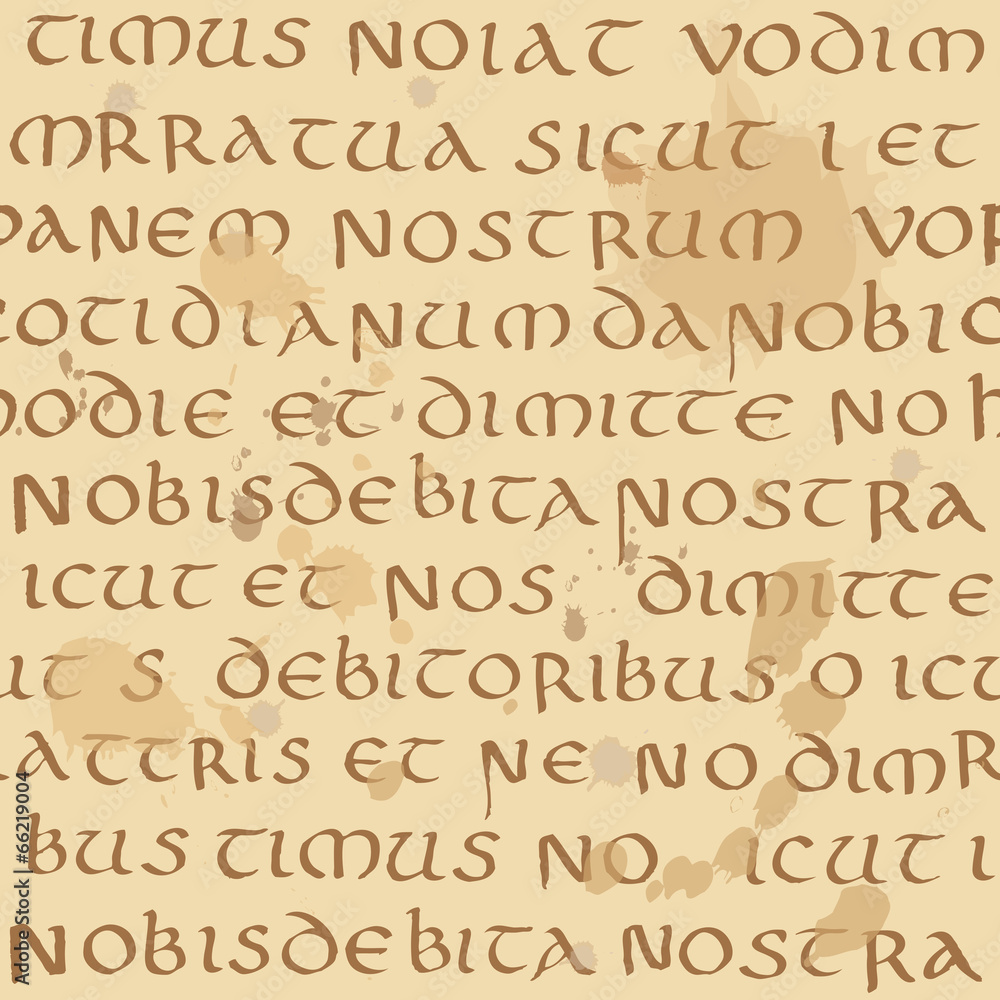 TIMUS NOIAT VODIM
MRRATUA SICUT I ET
PANEM NOSTRUM VOR
COTIDIANUM DA NOBIO
HODIE ET DIMITTE NO H
NOBISDEBITA NOSTRA
ICUT ET NOS DIMITTE
UT S DEBITORIBUS O ICU
ATTRIS ET NE NO DIMR
BUS TIMUS NO ICUT I
NOBISDEBITA NOSTRA
Adobe Stock | #66219004